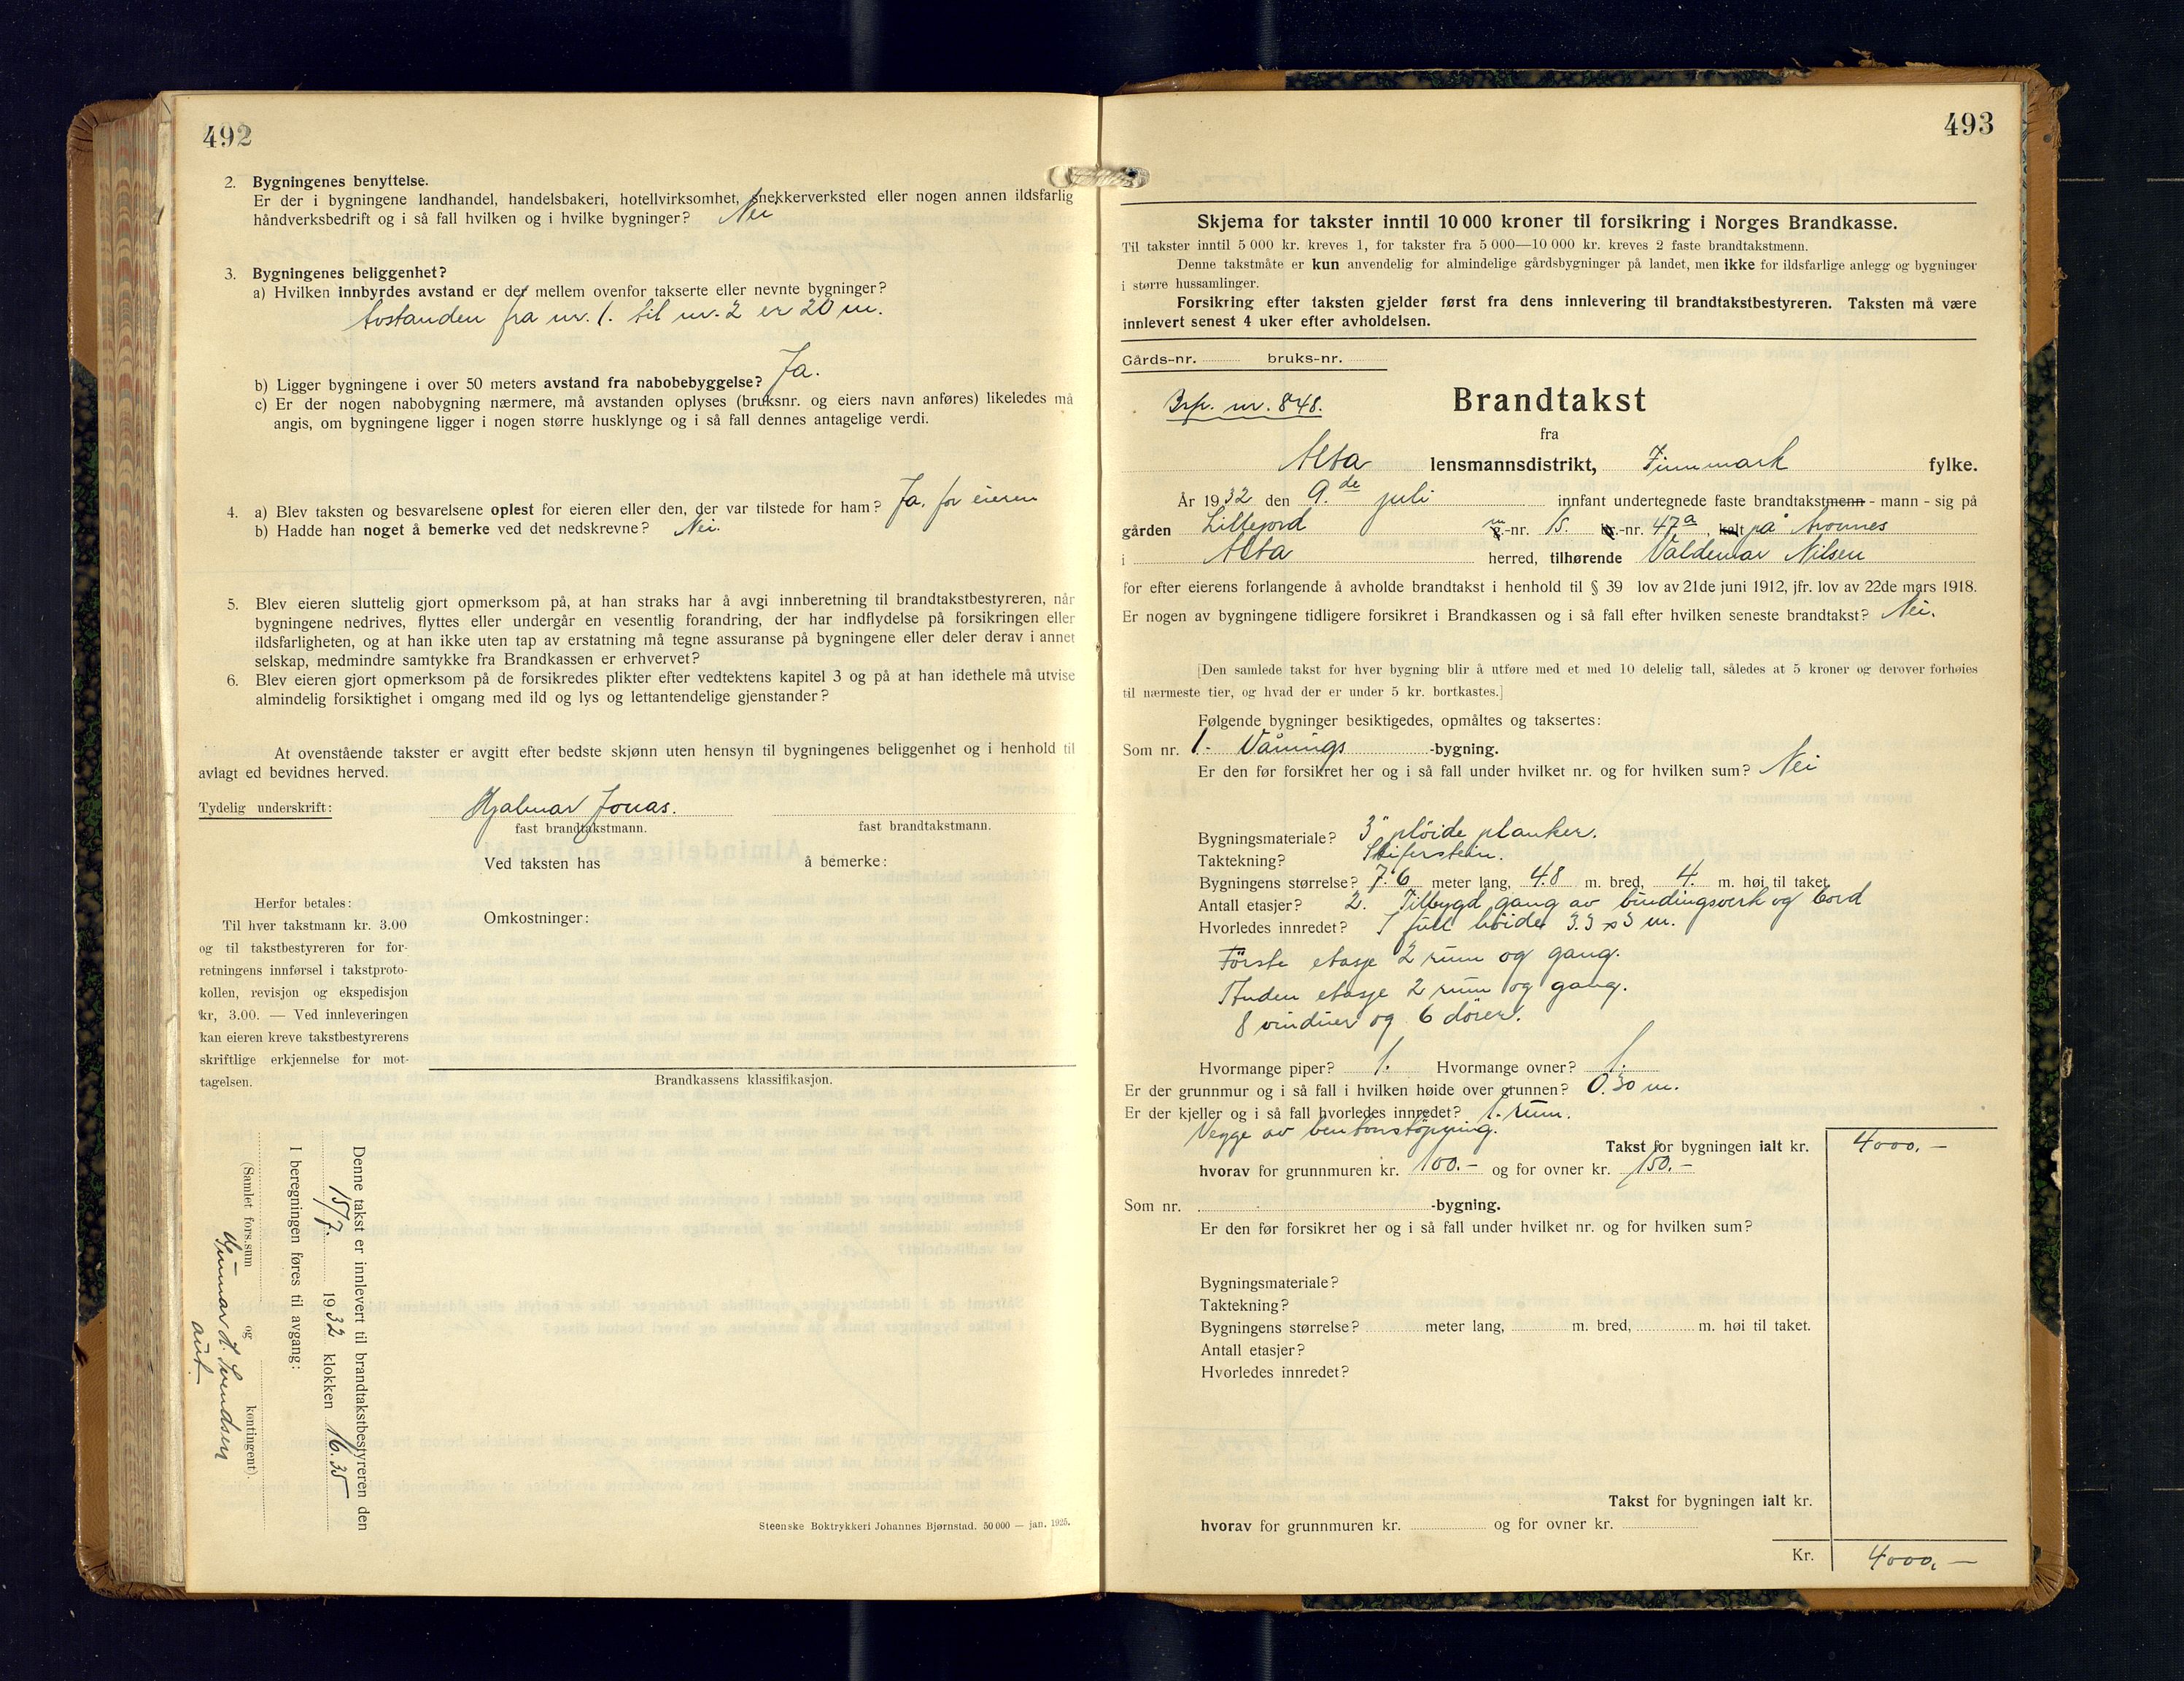 492
2. Bygningenes benyttelse.
Er der i bygningene landhandel, handelsbakeri, hotellvirksomhet, snekkerverksted eller nogen annen ildsfarlig
håndverksbedrift og i så fall hvilken og i hvilke bygninger? Nei
3. Bygningenes beliggenhet?
a) Hvilken innbyrdes avstand er det mellem ovenfor takserte eller nevnte bygninger?
Avstanden fra nr. 1. til nr. 2 er 20 m.
b) Ligger bygningene i over 50 meters avstand fra nabobebyggelse? Ja.
c) Er der nogen nabobygning nærmere, må avstanden oplyses (bruksnr. og eiers navn anføres) likeledes må
angis, om bygningene ligger i nogen større husklynge og i så fall dennes antagelige verdi.
4. a) Blev taksten og besvarelsene oplest for eieren eller den, der var tilstede for ham? Ja, for eieren
b) Hadde han noget å bemerke ved det nedskrevne? Nei.
5. Blev eieren sluttelig gjort opmerksom på, at han straks har å avgi innberetning til brandtakstbestyreren, når
bygningene nedrives, flyttes eller undergår en vesentlig forandring, der har indflydelse på forsikringen eller
ildsfarligheten, og at han ikke uten tap av erstatning må tegne assuranse på bygningene eller deler derav i annet
selskap, medmindre samtykke fra Brandkassen er erhvervet?
6. Blev eieren gjort opmerksom på de forsikredes plikter efter vedtektens kapitel 3 og på at han idethele må utvise
almindelig forsiktighet i omgang med ild og lys og lettantendelige gjenstander?
At ovenstående takster er avgitt efter bedste skjønn uten hensyn til bygningenes beliggenhet og i henhold til
avlagt ed bevidnes herved.
Tydelig underskrift: Hjalmar Jonas.
fast brandtakstmann. fast brandtakstmann.
Ved taksten has å bemerke:
Omkostninger:
Herfor betales:
Til hver takstmann kr. 3.00
og til takstbestyreren for for-
retningens innførsel i takstproto-
kollen, revisjon og ekspedisjon
kr, 3.00. — Ved innleveringen
kan eieren kreve takstbestyrerens
skriftlige erkjennelse for mot-
tagelsen.
Brandkassens klassifikasjon.
Denne takst er innlevert til brandtakstbestyreren den
15/7. 1932 klokken 16.35
I beregningen føres til avgang:
(Samlet fors.sum og kontingent).
Gunnar H. Svendsen
aut.
Steenske Boktrykkeri Johannes Bjørnstad. 50 000 — jan. 1925.
493
Skjema for takster inntil 10 000 kroner til forsikring i Norges Brandkasse.
Til takster inntil 5 000 kr. kreves 1, for takster fra 5 000—10 000 kr. kreves 2 faste brandtakstmenn.
Denne takstmåte er kun anvendelig for almindelige gårdsbygninger på landet, men ikke for ildsfarlige anlegg og bygninger
i større hussamlinger.
Forsikring efter taksten gjelder først fra dens innlevering til brandtakstbestyreren. Taksten må være
innlevert senest 4 uker efter avholdelsen.
Gårds-nr. bruks-nr.
Brp. nr. 848.
Brandtakst
fra
Alta lensmannsdistrikt, Finnmark fylke.
År 1932 den 9.de juli innfant undertegnede faste brandtakstmenn - mann - sig på
gården Lillejord -nr. 15. -nr. 47a, kalt på Aronnes
i Alta herred, tilhørende Valdemar Nilsen
for efter eierens forlangende å avholde brandtakst i henhold til § 39 lov av 21de juni 1912, jfr. lov av 22de mars 1918.
Er nogen av bygningene tidligere forsikret i Brandkassen og i så fall efter hvilken seneste brandtakst? Nei.
[Den samlede takst for hver bygning blir å utføre med et med 10 delelig tall, således at 5 kroner og derover forhøies
til nærmeste tier, og hvad der er under 5 kr. bortkastes.]
Følgende bygninger besiktigedes, opmåltes og taksertes:
Som nr. 1. Vånings -bygning.
Er den før forsikret her og i så fall under hvilket nr. og for hvilken sum? Nei
Bygningsmateriale? 3" pløide planker.
Taktekning? Skiferstein.
Bygningens størrelse? 7.6 meter lang, 4.8 m. bred, 4. m. høi til taket.
Antall etasjer? 2. Tilbygd gang av bindingsverk og bord
Hvorledes innredet? I full høide 3.3 x 3 m.
Første etasje 2 rum og gang.
Anden etasje 2 rum og gang.
8 vinduer og 6 dører.
Hvormange piper? 1. Hvormange ovner? 1.
Er der grunnmur og i så fall i hvilken høide over grunnen? 0.30 m.
Er der kjeller og i så fall hvorledes innredet? 1. rum.
Vegge av bentonstøpning.
Takst for bygningen ialt kr. 4000.-
hvorav for grunnmuren kr. 100.- og for ovner kr. 150.-
Som nr. -bygning.
Er den før forsikret her og i så fall under hvilket nr. og for hvilken sum?
Bygningsmateriale?
Taktekning?
Bygningens størrelse? meter lang, m. bred, m. høi til taket.
Antall etasjer?
Hvorledes innredet?
Takst for bygningen ialt kr.
hvorav for grunnmuren kr. og for ovner kr.
Kr. 4000,-